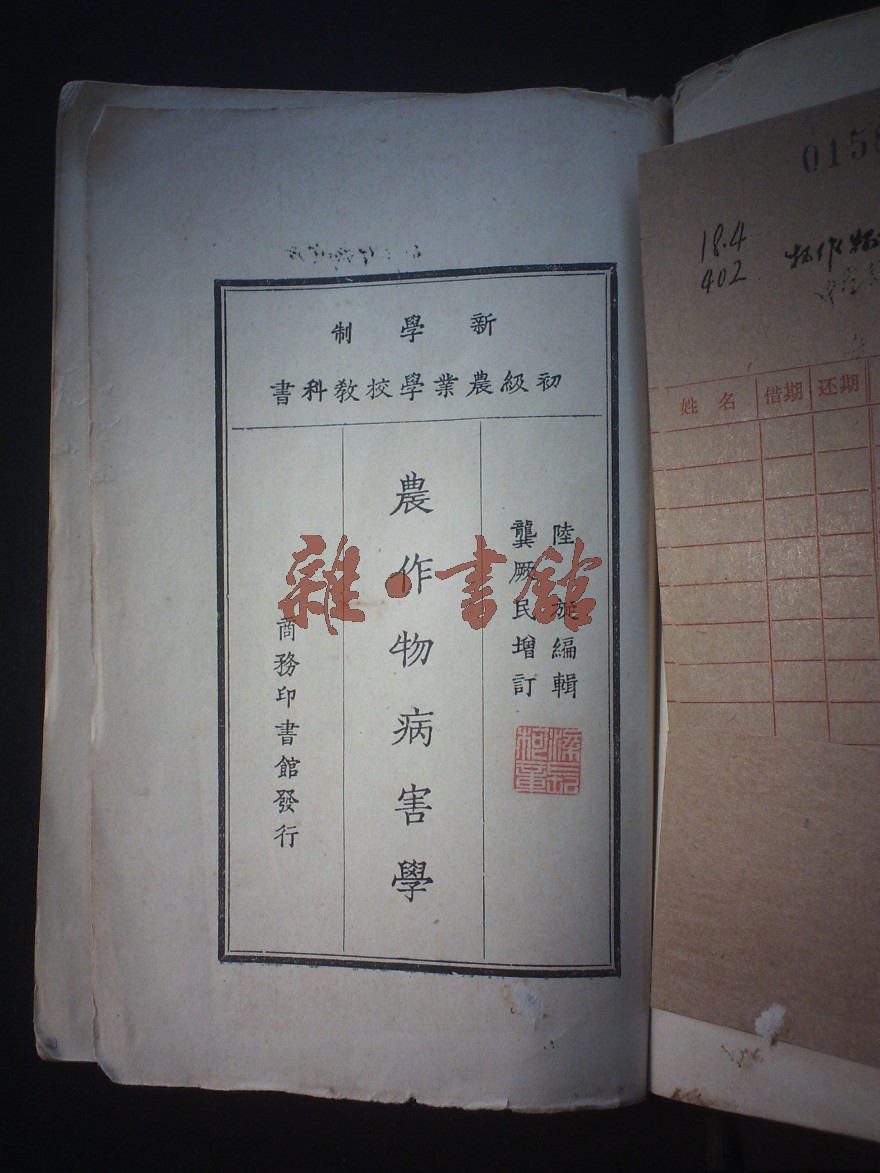 新學制
初級農業學校教科書
陸旋編輯
龔厥民增訂
農作物病害學
商務印書館發行
雜·書館
0158
18.4
402
姓名 借期 还期